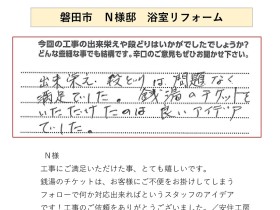 磐田市　N様邸　浴室リフォーム
今回の工事の出来栄えや段どりはいかがでしたでしょうか？
どんな些細な事でも結構です。辛口のご意見もぜひお聞かせ下さい。
出来栄え・段どりは問題なく
満足でした。銭湯のチケットを
いただけたのは良いアイデア
でした。
N様
工事にご満足いただけた事、とても嬉しいです。
銭湯のチケットは、お客様にご不便をお掛けしてしまう
フォローで何か対応出来ればというスタッフのアイデア
です！工事のご依頼をありがとうございました。／安住工房